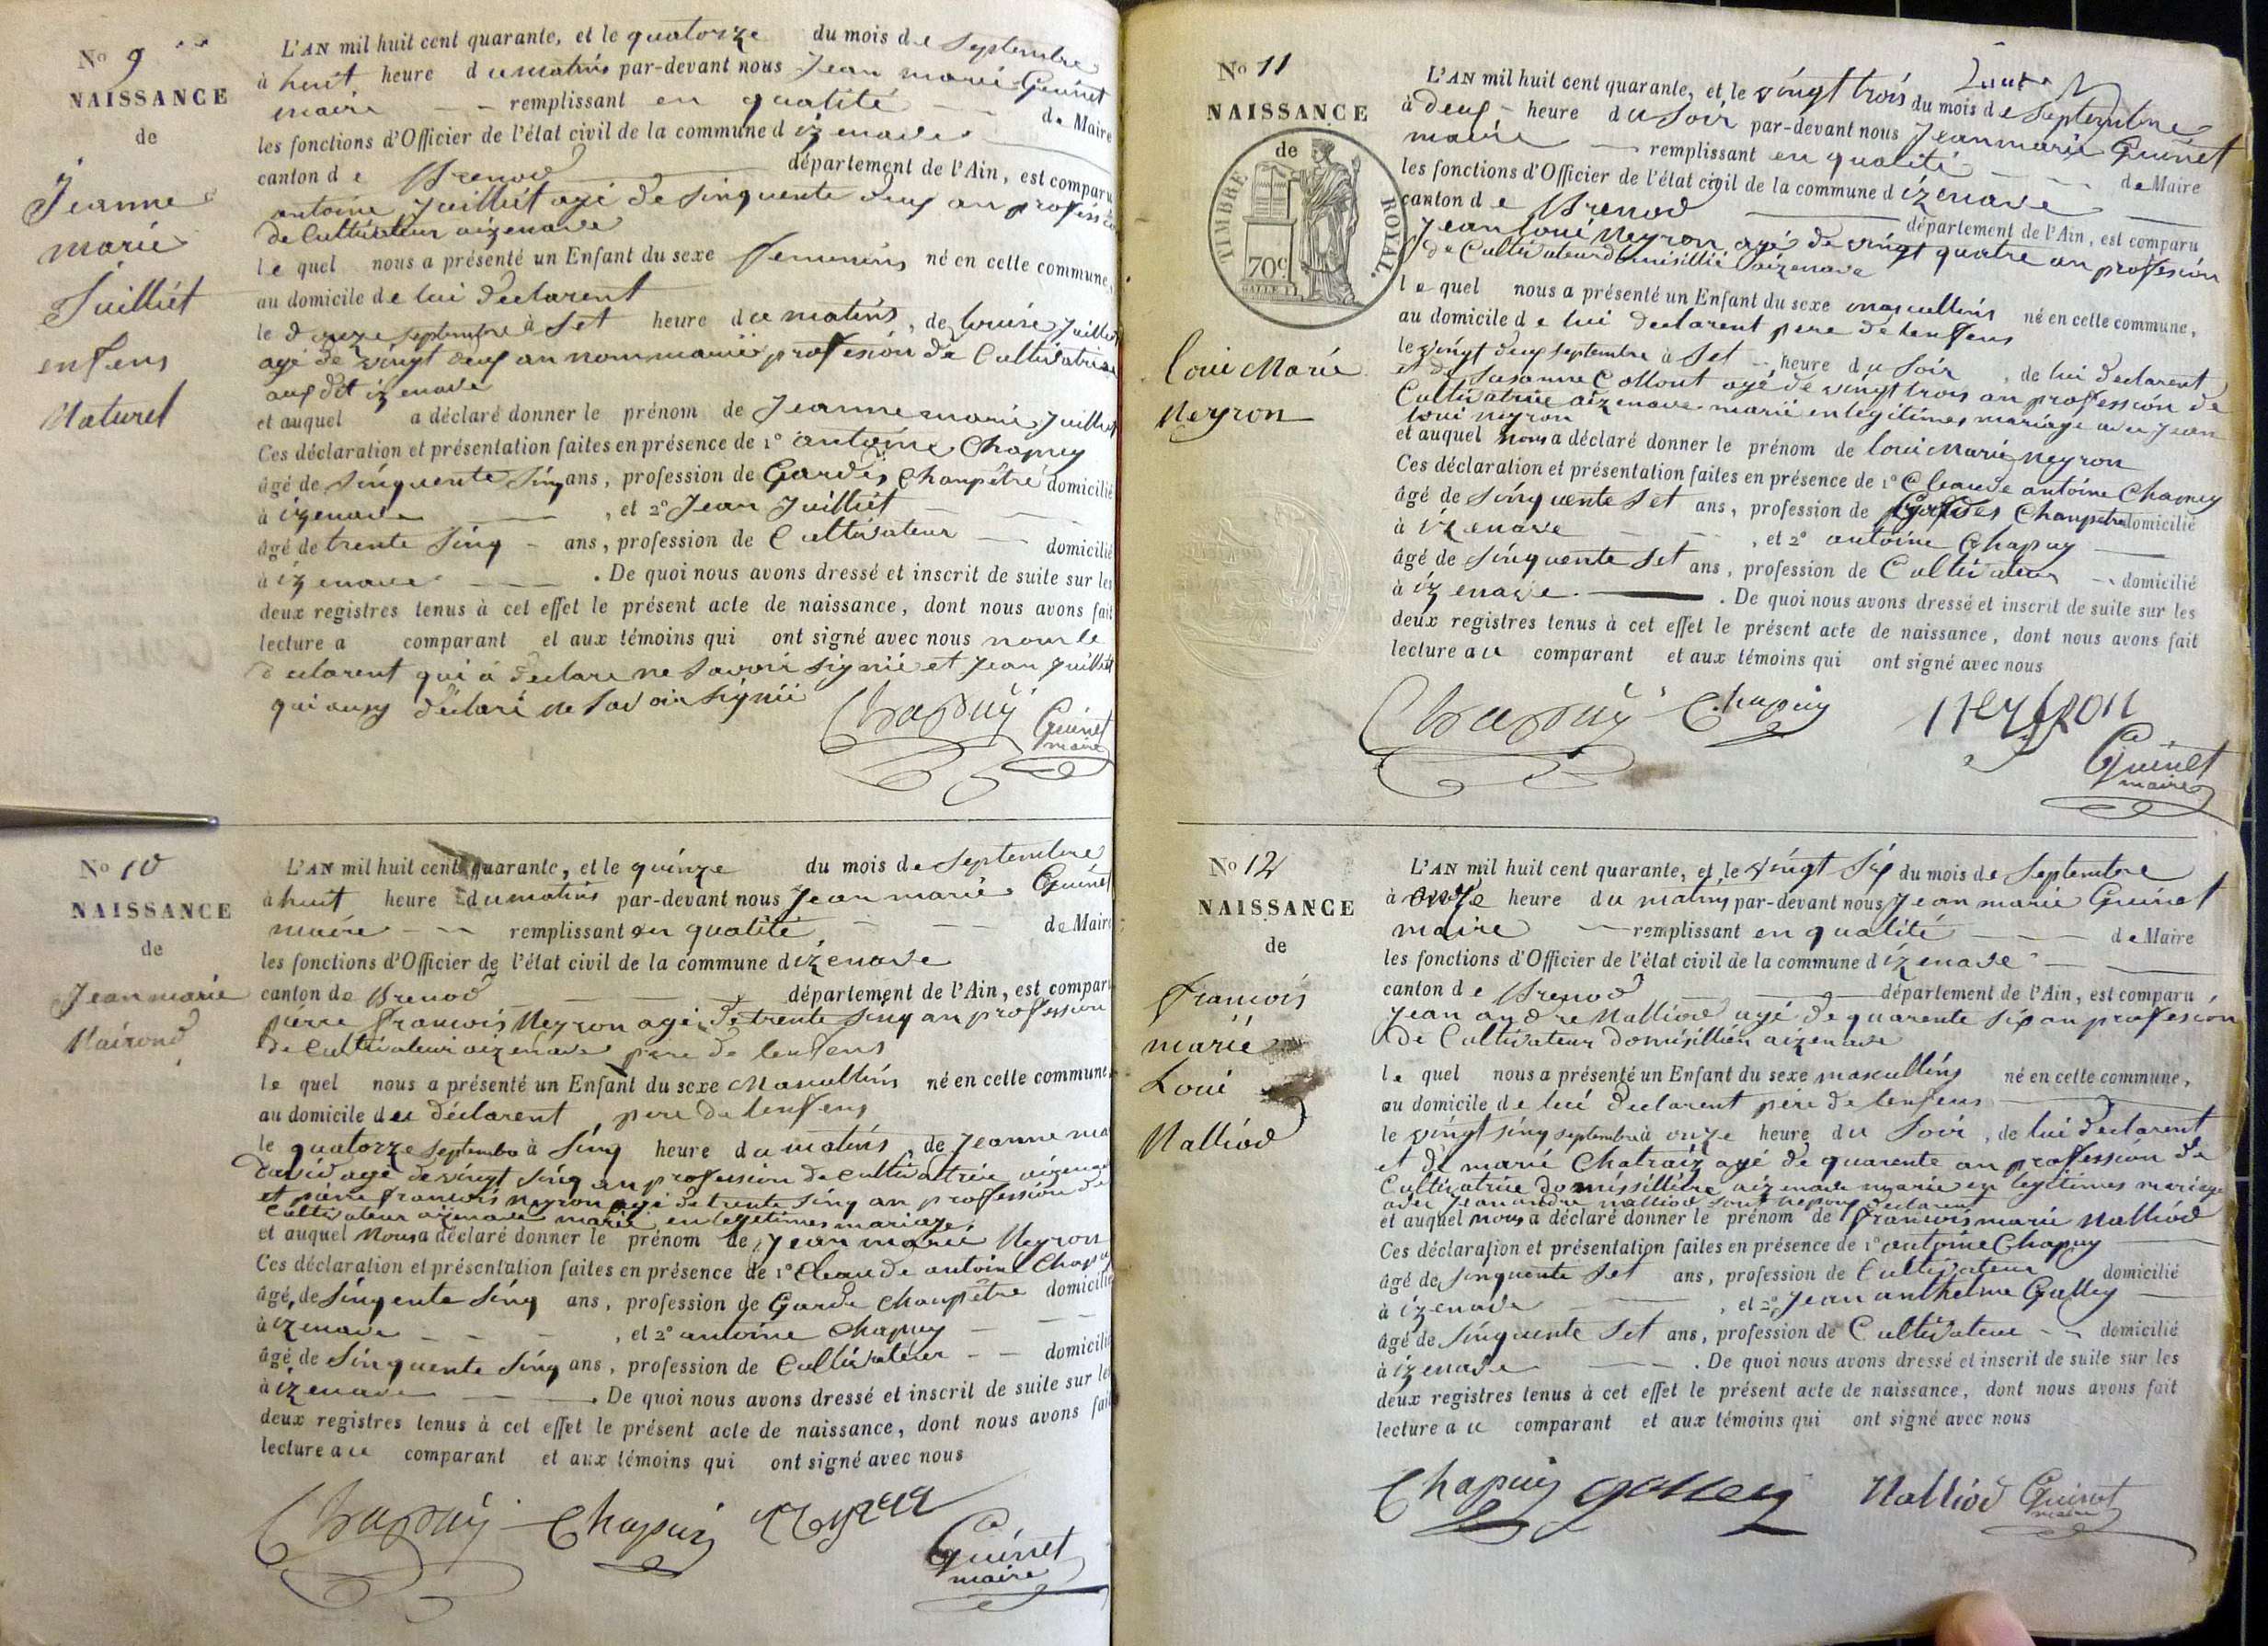 No 9
NAISSANCE
de
Jeanne
marie
Juilliet
enfens
Naturel
L'AN mil huit cent quarante, et le quatorze du mois de Septembre
à huit heure du matins par-devant nous Jean marie Guinet
maire remplissant en qualité de Maire
les fonctions d'Officier de l'état civil de la commune d izenave
canton de Brenod département de l'Ain, est comparu
antoine Juilliet agé de sinquente deux an profession
de Cultivateur aizenave
le quel nous a présenté un Enfant du sexe femenins né en cette commune,
au domicile de lui declarent
le douze septembre à Set heure du matins, de louise Juilliet
agé de vingt deux an nommarié profession de Cultivatrice
aux dit izenave
et auquel a déclaré donner le prénom de Jeanne marie Juilliet
Ces déclaration et présentation faites en présence de 1º antoine Chapuy
âgé de sinquente sinq ans, profession de Gardes Champêtre domicilié
à izenave, et 2º Jean Juilliet
âgé de trente sinq ans, profession de Cultivateur domicilié
à izenave. De quoi nous avons dressé et inscrit de suite sur les
deux registres tenus à cet effet le présent acte de naissance, dont nous avons fait
lecture a comparant et aux témoins qui ont signé avec nous non le
declarent qui à declare ne savoir signié et Jean Juilliet
qui ausy déclaré ne savoir signié
Chapuy Guinet
maire
No 10
NAISSANCE
de
Jean marie
Nairond
L'AN mil huit cent quarante, et le quinze du mois de Septembre
à huit heure du matins par-devant nous Jean marie Guinet
maire remplissant en qualité de Maire
les fonctions d'Officier de l'état civil de la commune d izenave
canton de Brenod département de l'Ain, est comparu
pierre francois Neyron agé de trente sinq an profession
de Cultivateur aizenave pere de lenfens
le quel nous a présenté un Enfant du sexe Mascullins né en cette commune,
au domicile du déclarent, pere de lenfens
le quatorze septembre à sinq heure du matins, de Jeanne ma
david agé de vingt sinq an profession de cultivatrice aizenave
et pierre francois neyron agé de trente sinq an profession de
Cultivateur aizenave marié en legetimes mariage
et auquel Nous a déclaré donner le prénom de Jean marie Neyron
Ces déclaration et présentation faites en présence de 1º Cleaude antoine Chapuy
âgé de sinqente sinq ans, profession de Garde Champêtre domicilié
à izenave, et 2º antoine Chapuy
âgé de sinquente sinq ans, profession de Cultivateur domicilié
à izenave. De quoi nous avons dressé et inscrit de suite sur les
deux registres tenus à cet effet le présent acte de naissance, dont nous avons fait
lecture au comparant et aux témoins qui ont signé avec nous
Chapuy Chapuis Neyron
Guinet
maire
No 11
NAISSANCE
de
TIMBRE ROYAL.
70c
loui Marie
Neyron
L'AN mil huit cent quarante, et le vingt trois du mois de Septembre
à deux heure du Soir par-devant nous Jean marie Guinet
maire remplissant en qualité de Maire
les fonctions d'Officier de l'état civil de la commune d izenave
canton de Brenod département de l'Ain, est comparu
Jean loui Neyron agé de vingt quatre an profession
de Cultivateur domisillié aizenave
le quel nous a présenté un Enfant du sexe mascullins né en cette commune,
au domicile de lui declarent pere de lenfens
le vingt deux septembre à Set heure du Soir, de lui declarent
et de Susanne Collont agé de vingt trois an profession de
Cultivatrice aizenave marié en legitimes mariage avec Jean
loui neyron
et auquel nous a déclaré donner le prénom de loui Marie Neyron
Ces déclaration et présentation faites en présence de 1º Cleaude antoine Chapuy
âgé de sinquente Set ans, profession de Gardes Champetre domicilié
à izenave, et 2º antoine Chapuy
âgé de sinquente Set ans, profession de Cultivateur domicilié
à izenave. De quoi nous avons dressé et inscrit de suite sur les
deux registres tenus à cet effet le présent acte de naissance, dont nous avons fait
lecture au comparant et aux témoins qui ont signé avec nous
Chapuy Chapuy Neyron
Guinet
maire
No 12
NAISSANCE
de
francois
marie
Loui
Nalliod
L'AN mil huit cent quarante, et le vingt six du mois de Septembre
à onze heure du matins par-devant nous Jean marie Guinet
maire remplissant en qualité de Maire
les fonctions d'Officier de l'état civil de la commune d izenave
canton de Brenod département de l'Ain, est comparu
Jean andre Nalliod agé de quarente six an profession
de Cultivateur domisillien aizenave
le quel nous a présenté un Enfant du sexe masculling né en cette commune,
au domicile de lui declarent pere de lenfens
le vingt sinq septembre à onze heure du Soir, de lui declarent
et de marie Chatraiz agé de quarente an profession de
Cultivatrice domissilliere aizenave marie en legitimes mariage
avec Jean andre nalliod declarent
et auquel nous a déclaré donner le prénom de francois marie Nalliod
Ces déclaration et présentation faites en présence de 1º antoine Chapuy
âgé de sinquente Set ans, profession de Cultivateur domicilié
à izenave, et 2º Jean anthelme Galley
âgé de sinquente Set ans, profession de Cultivateur domicilié
à izenave. De quoi nous avons dressé et inscrit de suite sur les
deux registres tenus à cet effet le présent acte de naissance, dont nous avons fait
lecture au comparant et aux témoins qui ont signé avec nous
Chapuis Galley Nalliod Guinet
maire